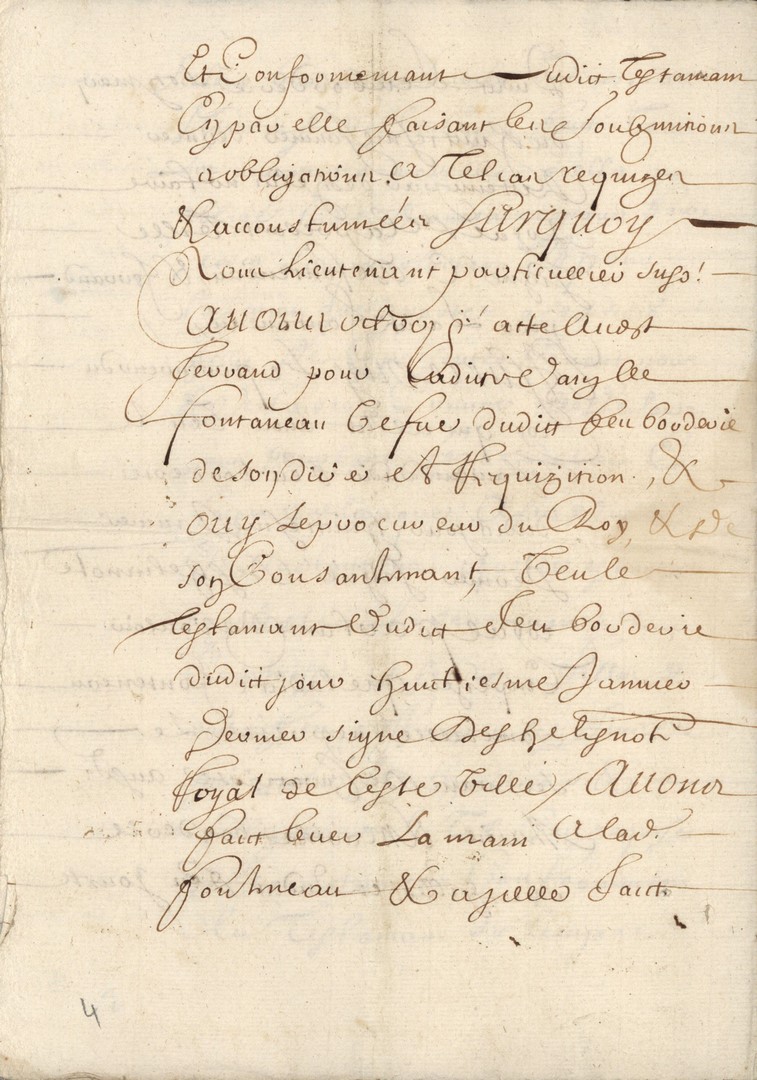 Et Conformemant audict Testamam
Et par elle faisant les Soubmitions
obligations A Tel cas requizes
& accoustumées Surquoy
Nous Lieutenant particullier susd!
AVons octroyé acte Audit
ferrand pour Ladicte
fontaneau vefue dudict feu borderie
de son dire et Requizition, &
ouy Le procureur du Roy, & de
son Consantmant, Veu Le
testamant dudict feu borderie
dudict jour huictiesme Januier
dernier signé not.
Royal de Ceste Ville / AVons
faict leuer La main A lad.
fontneau & a jcelle faict
4